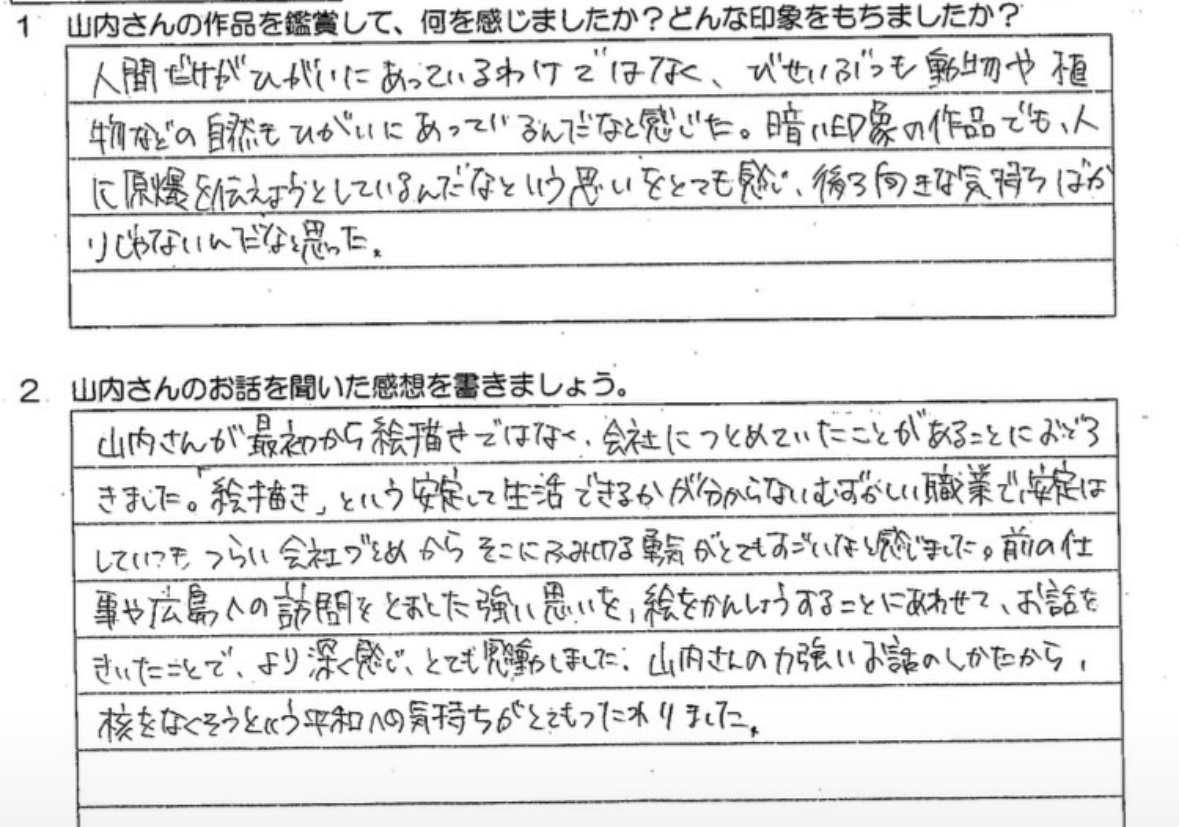 1 山内さんの作品を鑑賞して、何を感じましたか？どんな印象をもちましたか？
人間だけがひがいにあっているわけではなく、びせいぶつも動物や植
物などの自然もひがいにあっているんだなと感じた。暗い印象の作品でも、人
に原爆を伝えようとしているんだなという思いをとても感じ、後ろ向きな気持ちばか
りじゃないんだなと思った。
2 山内さんのお話を聞いた感想を書きましょう。
山内さんが最初から絵描きではなく、会社につとめていたことがあることにおどろ
きました。「絵描き」という安定して生活できるかが分からないむずかしい職業で、安定は
していても つらい会社づとめからそこにふみいける勇気がとてもすごいなと感じました。前の仕
事や広島への訪問をとおした強い思いを、絵をかんしょうすることにあわせて、お話を
きいたことで、より深く感じ、とても感動しました。山内さんの力強いお話のしかたから、
核をなくそうという平和への気持ちがとてもつたわりました。